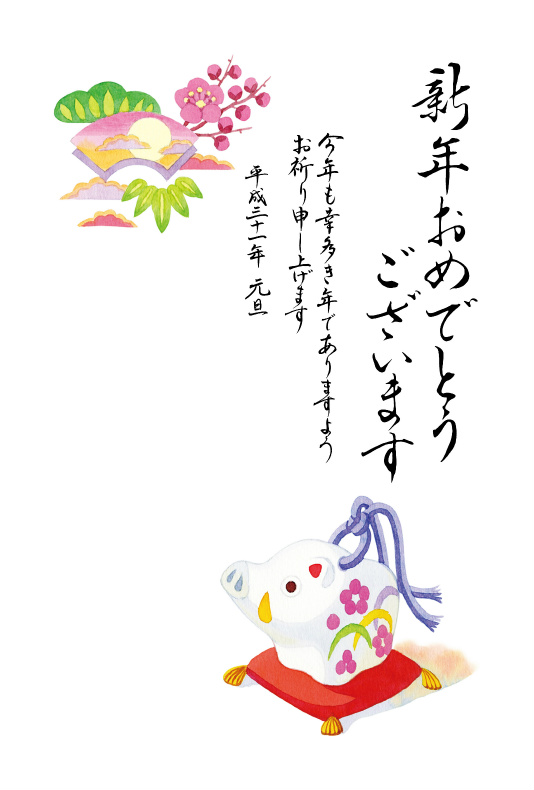 新年おめでとう
ございます
今年も幸多き年でありますよう
お祈り申し上げます
平成三十一年 元旦